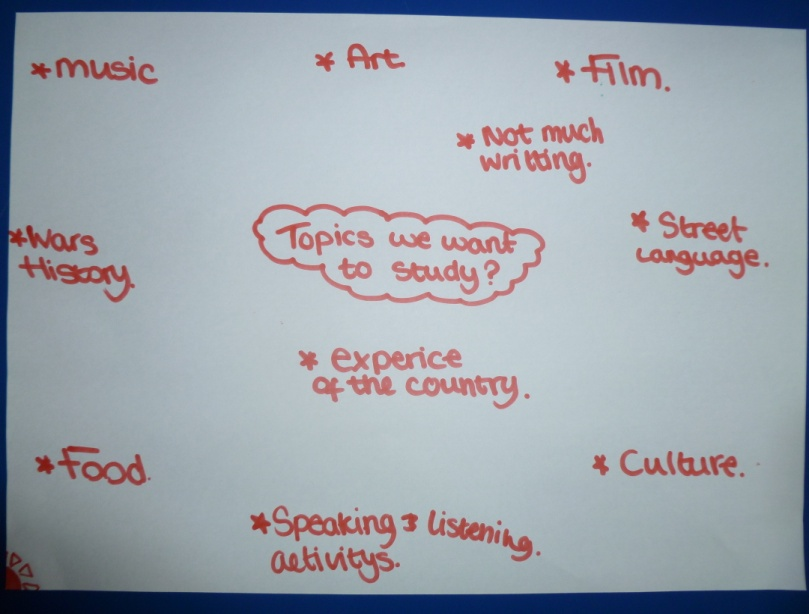 * music
* Art
* Film.
* Not much
writting.
* Wars
History.
Topics we want
to study?
* Street
Language.
* experice
of the country.
* Food.
* Culture.
* Speaking & listening.
activitys.